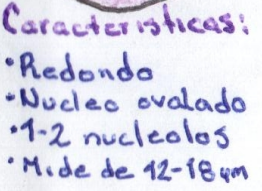 Caracteristicas:
•Redondo
•Nucleo ovalado
•1-2 nucleolos
•Mide de 12-18 um